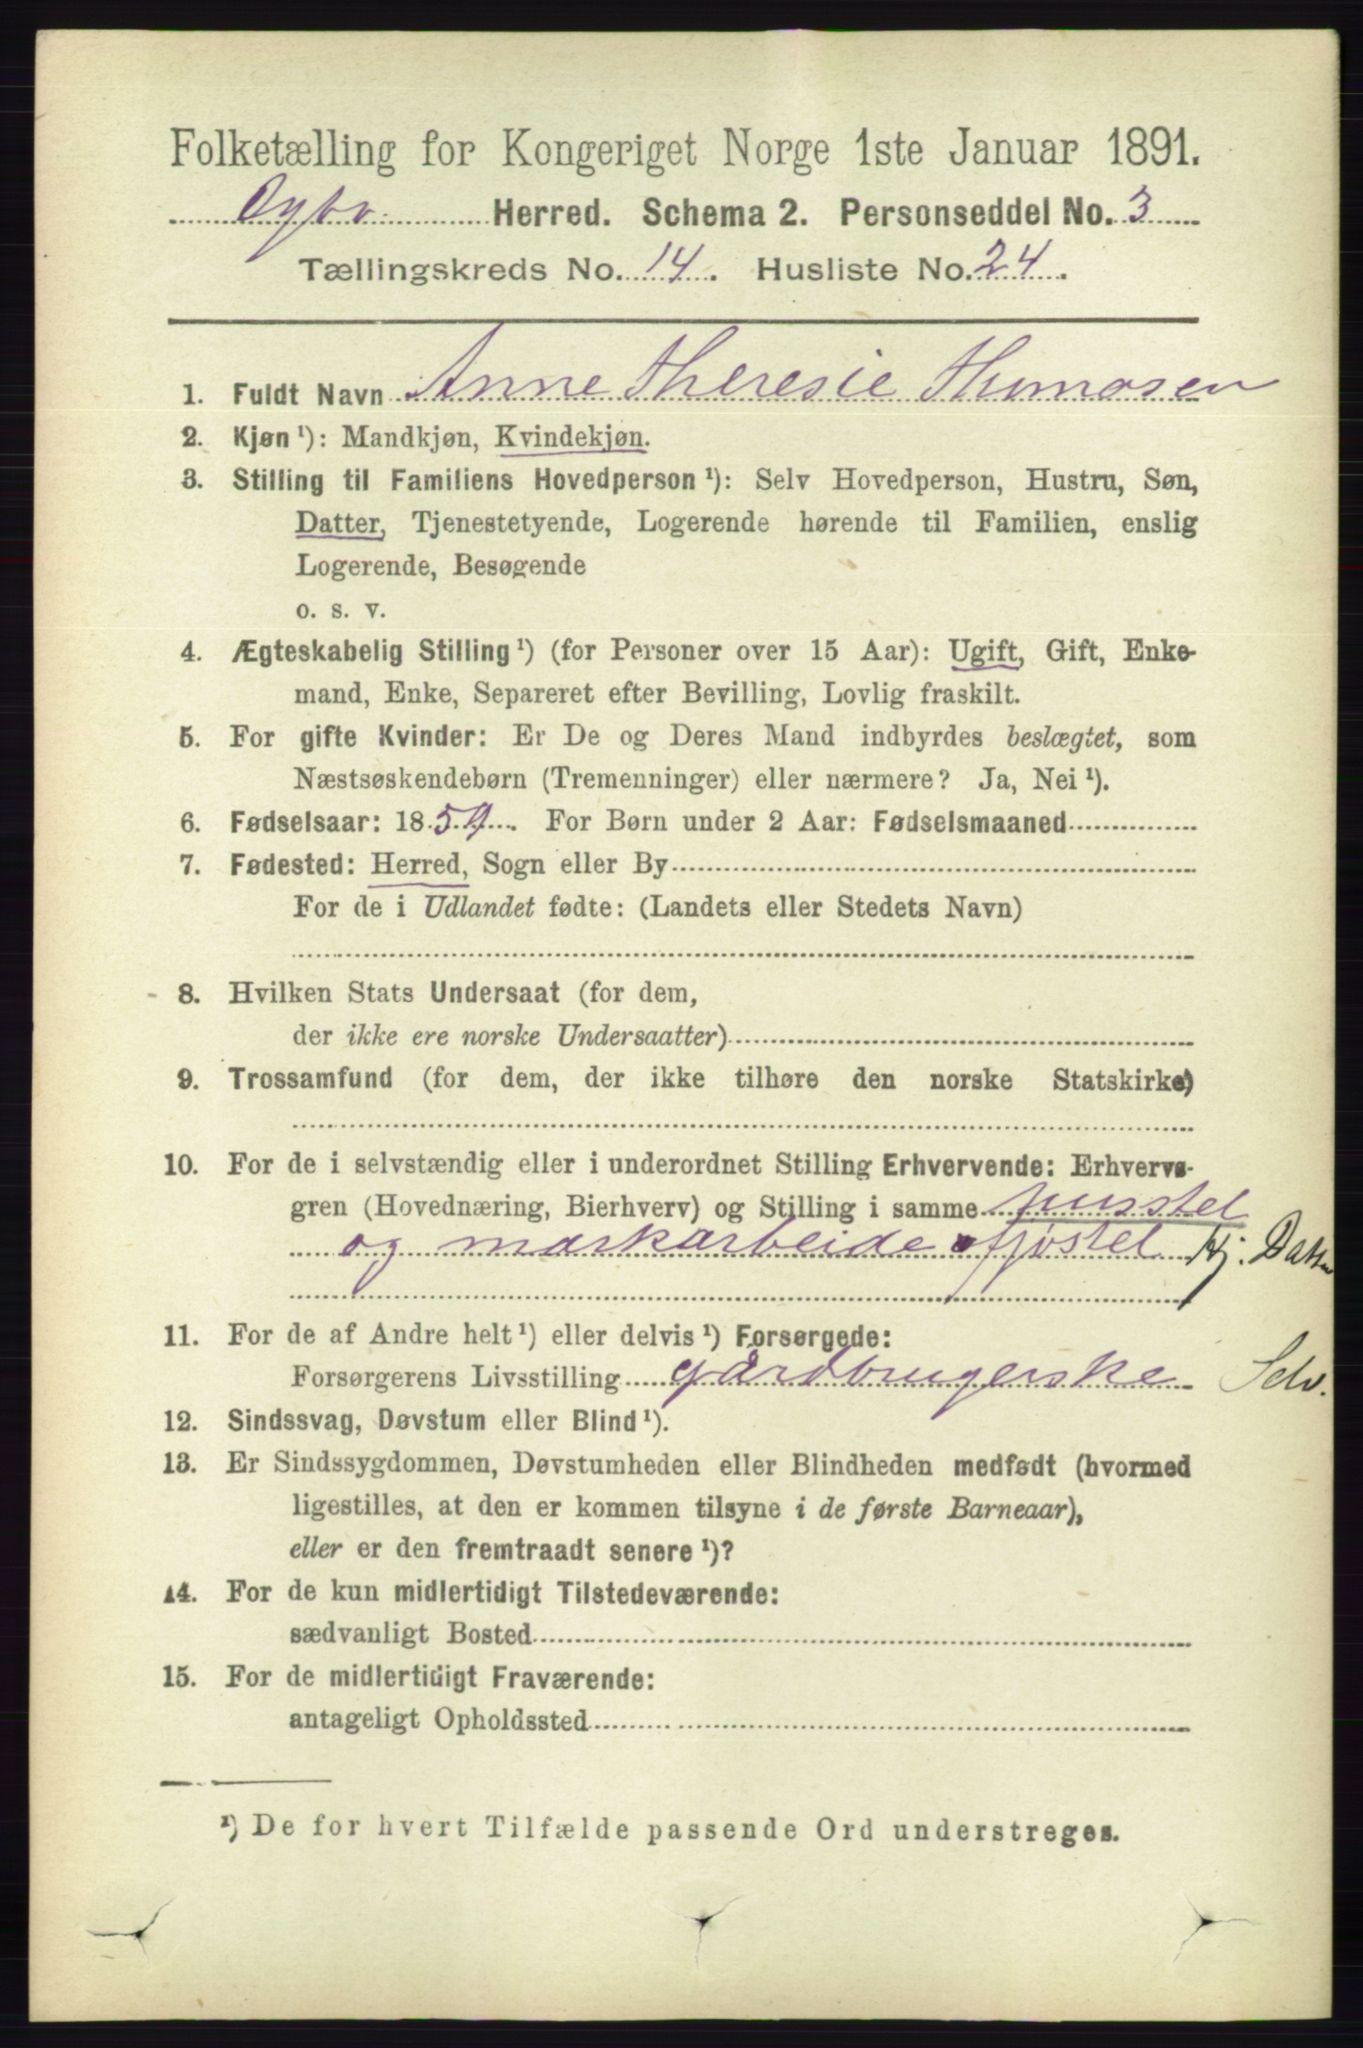 Folketælling for Kongeriget Norge 1ste Januar 1891.
Herred. Schema 2. Personseddel No. 3
Tællingskreds No. 14. Husliste No. 24.
1. Fuldt Navn Anne Theresie Thomasen
2. Kjøn ¹): Mandkjøn, Kvindekjøn.
3. Stilling til Familiens Hovedperson ¹): Selv Hovedperson, Hustru, Søn,
Datter, Tjenestetyende, Logerende hørende til Familien, enslig
Logerende, Besøgende
o. s. v.
4. Ægteskabelig Stilling ¹) (for Personer over 15 Aar): Ugift, Gift, Enke-
mand, Enke, Separeret efter Bevilling, Lovlig fraskilt.
5. For gifte Kvinder: Er De og Deres Mand indbyrdes beslægtet, som
Næstsøskendebørn (Tremenninger) eller nærmere? Ja, Nei ¹).
6. Fødselsaar: 1859. For Børn under 2 Aar: Fødselsmaaned
7. Fødested: Herred, Sogn eller By
For de i Udlandet fødte: (Landets eller Stedets Navn)
8. Hvilken Stats Undersaat (for dem,
der ikke ere norske Undersaatter)
9. Trossamfund (for dem, der ikke tilhøre den norske Statskirke)
10. For de i selvstændig eller i underordnet Stilling Erhvervende: Erhvervs-
gren (Hovednæring, Bierhverv) og Stilling i samme husstel
og markarbeide fjøstel Hj. Datter
11. For de af Andre helt ¹) eller delvis ¹) Forsørgede:
Forsørgerens Livsstilling gårdbrugerske Selv.
12. Sindssvag, Døvstum eller Blind ¹).
13. Er Sindssygdommen, Døvstumheden eller Blindheden medfødt (hvormed
ligestilles, at den er kommen tilsyne i de første Barneaar),
eller er den fremtraadt senere ¹)?
14. For de kun midlertidigt Tilstedeværende:
sædvanligt Bosted
15. For de midlertidigt Fraværende:
antageligt Opholdssted
¹) De for hvert Tilfælde passende Ord understreges.